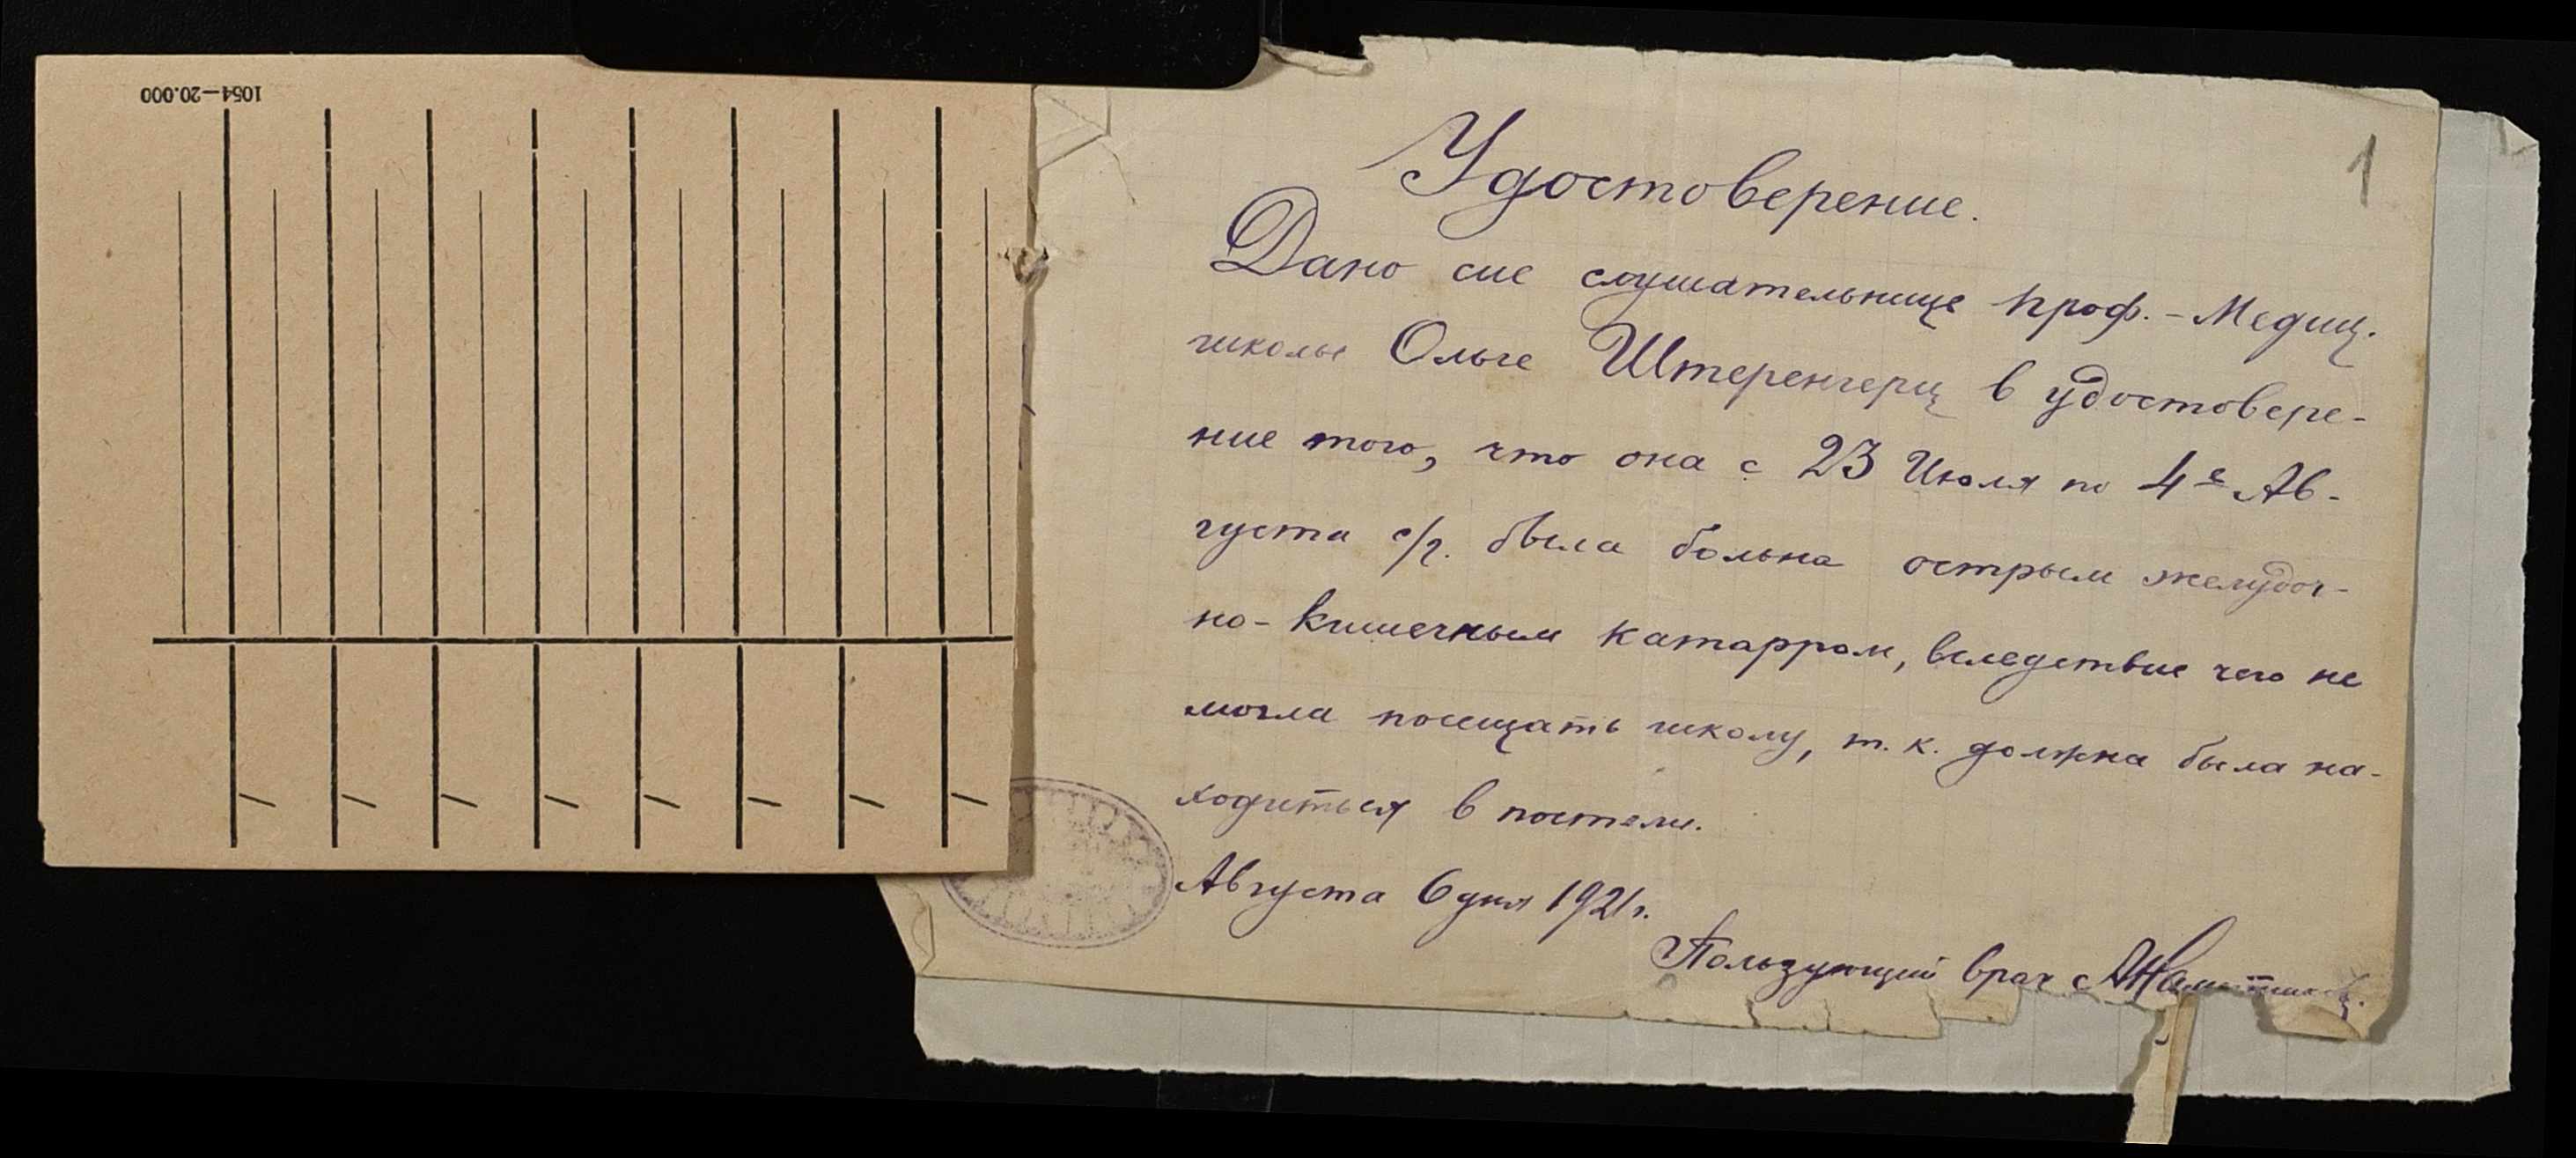 1054—20.000
1
Удостоверение.
Дано сие слушательнице проф.-Медиц.
школы Ольге Штеренгерц в удостовере-
ние того, что она с 23 Июля по 4е Ав-
густа с/г. была больна острым желудоч-
но-кишечным катарром, вследствие чего не
могла посещать школу, т.к. должна была на-
ходиться в постели.
Августа 6 дня 1921г.
Пользующий врач